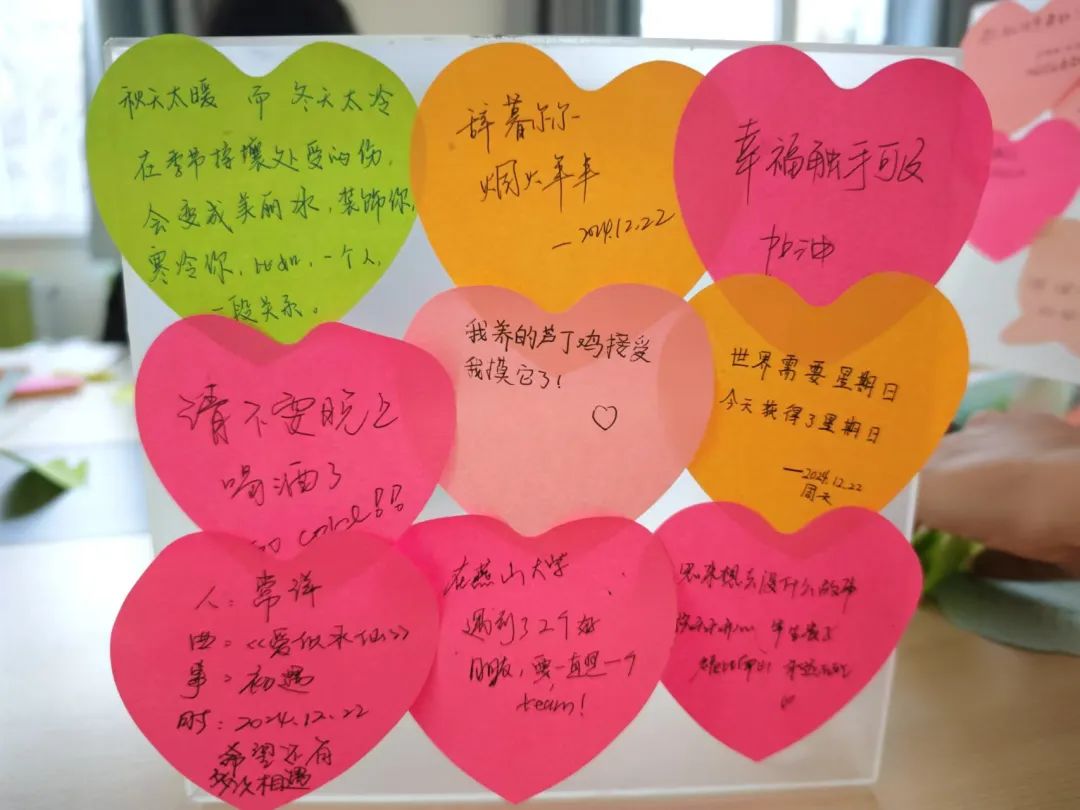 秋天太暖 而 冬天太冷
在季节接壤处受的伤,
会变成美丽冰,装饰你,
寒冷你,比如,一个人,
一段关系。
辞暮尔尔
烟火年年
—2024.12.22
幸福触手可及
加油
请不要晚上
喝酒了
so cold!!
我养的芦丁鸡接受
我摸它了!
♡
世界需要星期日
今天获得了星期日
—2024.12.22
周天
人:常洋
曲:《爱似水仙》
事:初遇
时:2024.12.22
希望还有
相遇
在燕山大学
遇到了2个好
朋友,要一直是一个
team!
想去没什么故事